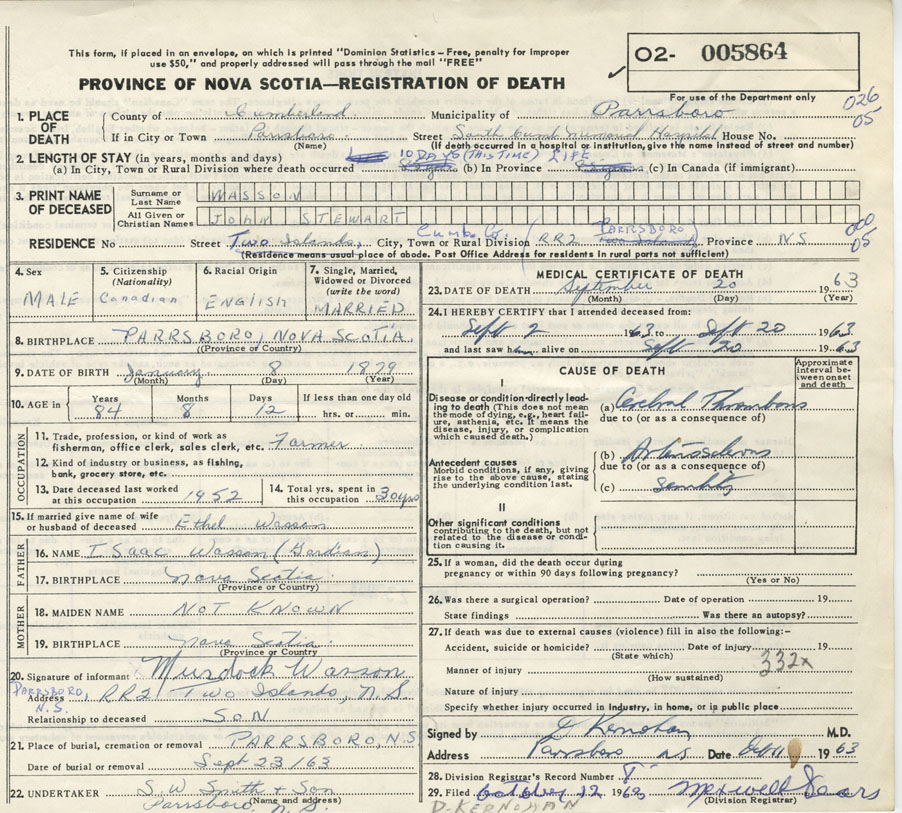 This form, if placed in an envelope, on which is printed "Dominion Statistics – Free, penalty for improper
use $50," and properly addressed will pass through the mail "FREE"
PROVINCE OF NOVA SCOTIA—REGISTRATION OF DEATH
O2- 005864
For use of the Department only
026
05
1. PLACE OF DEATH
County of Cumberland Municipality of Parrsboro
If in City or Town Parrsboro Street South Cumb Memorial Hospital House No.
(Name) (If death occurred in a hospital or institution, give the name instead of street and number)
2. LENGTH OF STAY (in years, months and days) 10 DAYS (THIS TIME) LIFE
(a) In City, Town or Rural Division where death occurred (b) In Province (c) In Canada (if immigrant)
3. PRINT NAME OF DECEASED
Surname or Last Name WASSON
All Given or Christian Names JOHN STEWART
Cumb Co. PARRSBORO 000
05
RESIDENCE No Street Two Islands, City, Town or Rural Division RR2 Two Islands Province NS
(Residence means usual place of abode. Post Office Address for residents in rural parts not sufficient)
4. Sex MALE
5. Citizenship (Nationality) Canadian
6. Racial Origin ENGLISH
7. Single, Married, Widowed or Divorced (write the word) MARRIED
8. BIRTHPLACE PARRSBORO, NOVA SCOTIA
(Province or Country)
9. DATE OF BIRTH January 8 1879
(Month) (Day) (Year)
10. AGE in Years 84 Months 8 Days 12 If less than one day old
hrs. or min.
OCCUPATION
11. Trade, profession, or kind of work as fisherman, office clerk, sales clerk, etc. Farmer
12. Kind of industry or business, as fishing, bank, grocery store, etc.
13. Date deceased last worked at this occupation 1952
14. Total yrs. spent in this occupation 30 yrs
15. If married give name of wife or husband of deceased Ethel Wasson
FATHER
16. NAME Isaac Wasson (Gardian)
17. BIRTHPLACE Nova Scotia
(Province or Country)
MOTHER
18. MAIDEN NAME NOT KNOWN
19. BIRTHPLACE Nova Scotia
(Province or Country
20. Signature of informant Murdock Wasson
PARRSBORO, N.S.
Address RR2 Two Islands, N.S.
Relationship to deceased SON
21. Place of burial, cremation or removal PARRSBORO, N.S
Date of burial or removal Sept 23/63
22. UNDERTAKER S. W. Smith + Son
(Name and address)
Parrsboro, N.S.
MEDICAL CERTIFICATE OF DEATH
23. DATE OF DEATH September 20 1963
(Month) (Day) (Year)
24. I HEREBY CERTIFY that I attended deceased from:
Sept 2 1963 to Sept 20 1963
and last saw him alive on Sept 20 1963
CAUSE OF DEATH
Approximate interval between onset and death
I
Disease or condition directly leading to death (This does not mean the mode of dying, e.g., heart failure, asthenia, etc. It means the disease, injury, or complication which caused death.)
(a) Cerebral Thrombosis
due to (or as a consequence of)
Antecedent causes
Morbid conditions, if any, giving rise to the above cause, stating the underlying condition last.
(b) Arteriosclerosis
due to (or as a consequence of)
(c) senility
II
Other significant conditions
contributing to the death, but not related to the disease or condition causing it.
25. If a woman, did the death occur during
pregnancy or within 90 days following pregnancy?
(Yes or No)
26. Was there a surgical operation? Date of operation 19
State findings Was there an autopsy?
27. If death was due to external causes (violence) fill in also the following:–
Accident, suicide or homicide? Date of injury 19
(State which) 332x
Manner of injury
(How sustained)
Nature of injury
Specify whether injury occurred in industry, in home, or in public place
Signed by J Kernohan M.D.
Address Parrsboro N.S Date 1963
28. Division Registrar's Record Number
29. Filed October 12 1963 Maxwell Sears
(Division Registrar)
D. KERNOHAN